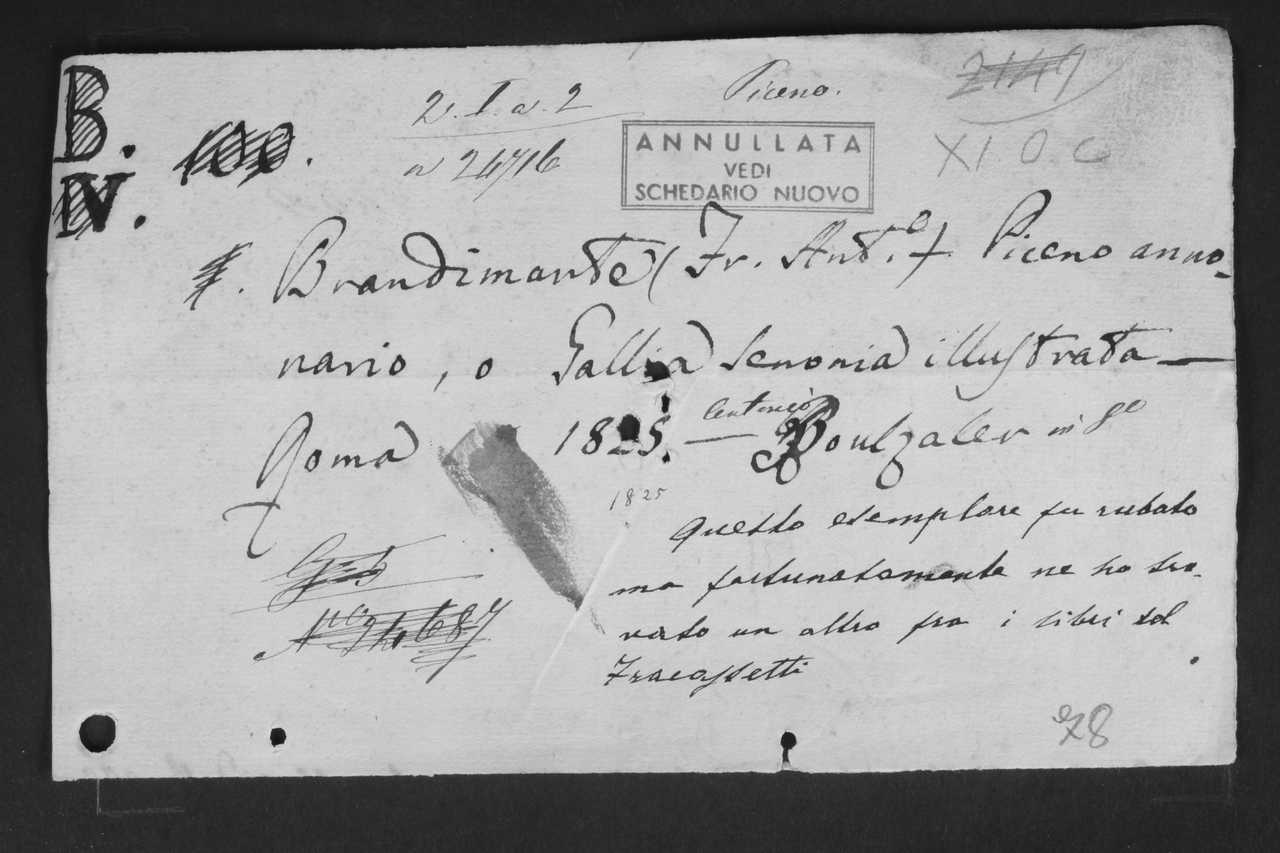 B.
IV.
100.
2. I. a. 2
a 24716
Piceno.
2149
XI O C
ANNULLATA
VEDI
SCHEDARIO NUOVO
Brandimante (Fr. Ant.º) Piceano anno-
nario, o Gallia Senonia illustrata —
Roma 1825. — Boulzaler in 8º
1825
Questo esemplare fu rubato
ma fortunatamente ne ho tro-
vato un altro fra i libri del
Fracassetti
24687
78